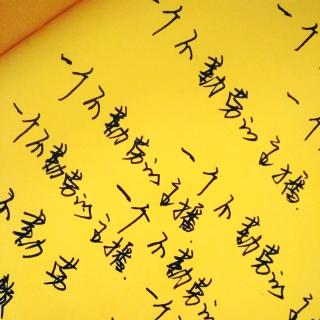 一个不勤劳的主播.
一个不勤劳的主播.
一个不勤劳的主播.
一个不勤劳的主
一个不勤劳的
不勤劳
一个
一
一